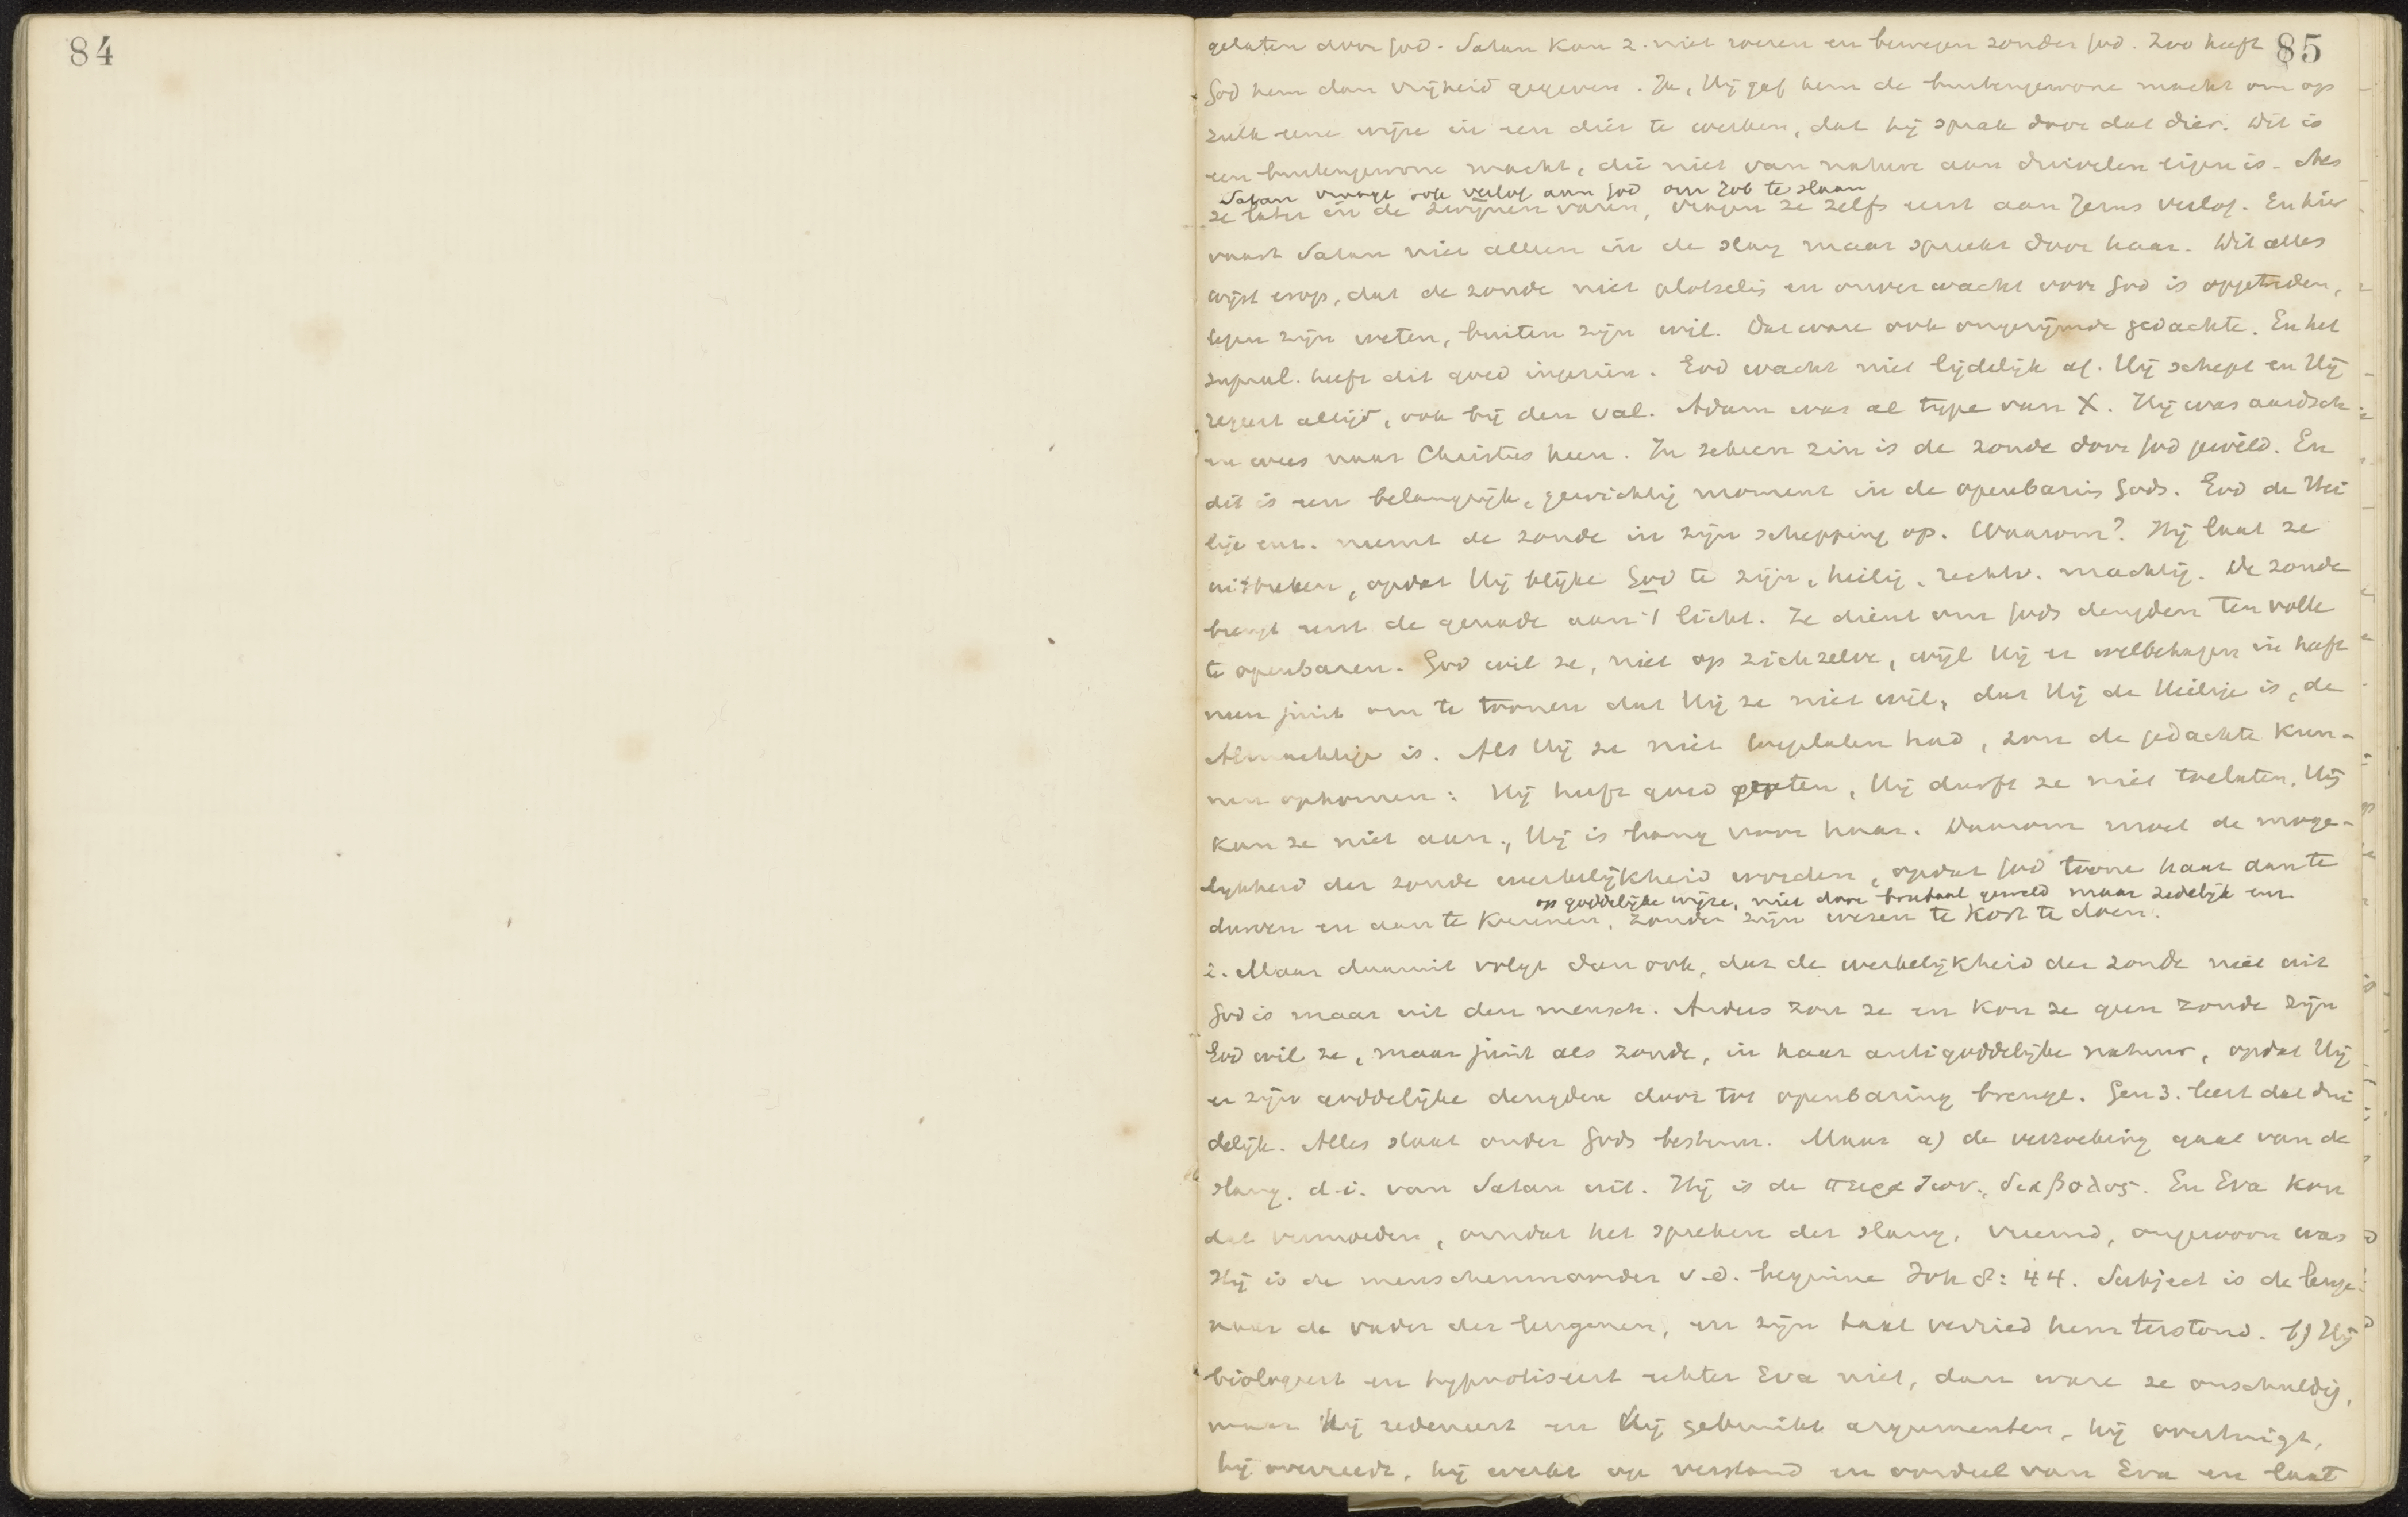 84
85
gelaten door God. Satan kan z. niet roeren en bewegen zonder God. Zoo heeft
God hem dan vrijheid gegeven. Ja, Hij gaf hem de buitengewone macht om op
zulk eene wijze in een dier te werken, dat hij sprak door dat dier. Dit is
een buitengewone macht, die niet van nature aan duivelen eigen is. Als
Satan vraagt ook verlof aan God om Job te slaan
ze later in de zwijnen varen, vragen ze zelfs eerst aan Jezus verlof. En hier
vaart Satan niet alleen in de slang maar spreekt door haar. Dit alles
wijst erop, dat de zonde niet plotseling en onverwacht voor God is opgetreden,
tegen zijn weten, buiten zijn wil. Dat ware ook ongerijmde gedachte. En het
supral. heeft dit goed ingezien. God wacht niet lijdelijk af. Hij schept en Hij
regeert altijd, ook bij den val. Adam was al type van X. Hij was aardsch
en wees naar Christus heen. In zekeren zin is de zonde door God gewild. En
dit is een belangrijk, gewichtig moment in de openbaring Gods. God de Hei
lige enz. neemt de zonde in zijn schepping op. Waarom? Hij laat ze
uitbreken, opdat Hij blijke God te zijn, heilig, rechtv. machtig. De zonde
brengt eerst de genade aan 't licht. Ze dient om Gods deugden ten volle
te openbaren. God wil ze, niet op zichzelve, wijl Hij er welbehagen in heeft
neen juist om te toonen dat Hij ze niet wil, dat Hij de Heilige is, de
Almachtige is. Als Hij ze niet toegelaten had, zou de gedachte kun-
nen opkomen: Hij heeft goed praten, Hij durft ze niet toelaten, Hij
kan ze niet aan, Hij is bang voor haar. Daarom moet de moge-
lijkheid der zonde werkelijkheid worden, opdat God toone haar aan te
op goddelijke wijze, niet door brutaal geweld maar zedelijk enz.
durven en aan te kunnen, zonder zijn wezen te kort te doen.
2. Maar daaruit volgt dan ook, dat de werkelijkheid der zonde niet uit
God is maar uit den mensch. Anders zou ze en kon ze geen zonde zijn
God wil ze, maar juist als zonde, in haar antigoddelijke natuur, opdat Hij
er zijn goddelijke deugden door tot openbaring brenge. Gen 3. leert dat dui
delijk. Alles staat onder Gods bestuur. Maar a) de verzoeking gaat van de
slang, d.i. van Satan uit. Hij is de πειραζων, διαβολος. En Eva kon
dat vermoeden, omdat het spreken der slang, vreemd, ongewoon was
Hij is de menschenmoorder v.d. beginne Joh 8:44. Subject is de leuge-
naar de vader der leugenen, en zijn taal verried hem terstond. b) Hij
biologeert en hypnotiseert echter Eva niet, dan ware ze onschuldig,
maar Hij redeneert en Hij gebruikt argumenten, hij overtuigt,
hij overreedt, hij werkt op verstand en oordeel van Eva en laat